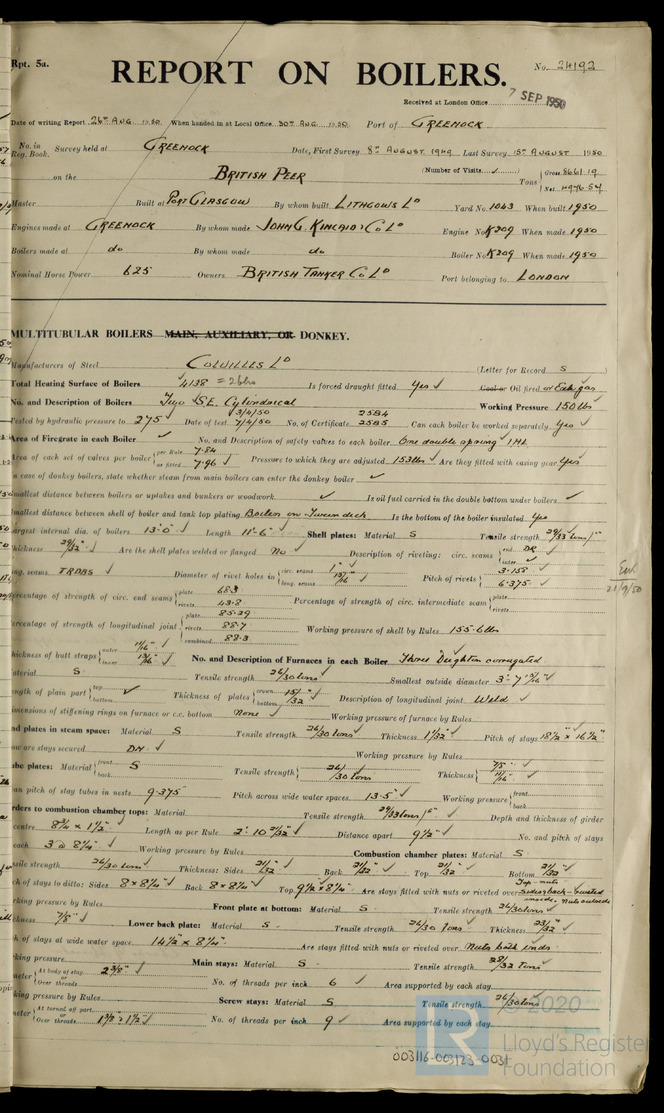 Rpt. 5a.
No. 24192
REPORT ON BOILERS.
Received at London Office 7 SEP 1950
Date of writing Report 26th AUG 1950 When handed in at Local Office 30th AUG 1950 Port of GREENOCK
No. in Reg. Book. Survey held at GREENOCK Date, First Survey 8th AUGUST 1949 Last Survey 15th AUGUST 1950
on the BRITISH PEER (Number of Visits ) Tons Gross 8661.19 Net 4976.54
Master Built at PORT GLASGOW By whom built LITHGOWS Ld Yard No. 1043 When built 1950
Engines made at GREENOCK By whom made JOHN G. KINCAID & Co Ld Engine No. K209 When made 1950
Boilers made at do By whom made do Boiler No. K209 When made 1950
Nominal Horse Power 625 Owners BRITISH TANKER Co Ld Port belonging to LONDON
MULTITUBULAR BOILERS MAIN, AUXILIARY, OR DONKEY.
Manufacturers of Steel COLVILLES Ld (Letter for Record S
Total Heating Surface of Boilers 4138 = 2 blrs Is forced draught fitted Yes Coal or Oil fired or Exh. gas
No. and Description of Boilers Two S.E. Cylindrical Working Pressure 150 lbs
Tested by hydraulic pressure to 275 Date of test 3/4/50 7/4/50 No. of Certificate 2584 2585 Can each boiler be worked separately Yes
Area of Firegrate in each Boiler ✓ No. and Description of safety valves to each boiler One double spring
Area of each set of valves per boiler per Rule 7.84 as fitted 7.96 Pressure to which they are adjusted 153 lbs Are they fitted with easing gear Yes
In case of donkey boilers, state whether steam from main boilers can enter the donkey boiler ✓
Smallest distance between boilers or uptakes and bunkers or woodwork ✓ Is oil fuel carried in the double bottom under boilers ✓
Smallest distance between shell of boiler and tank top plating Boilers on Tweendeck Is the bottom of the boiler insulated Yes
Largest internal dia. of boilers 13'-0" Length 11'-6" Shell plates: Material S Tensile strength 29/33 tons/□"
Thickness 29/32" Are the shell plates welded or flanged No Description of riveting: circ. seams end DR inter ✓
long. seams TRDBS Diameter of rivet holes in circ. seams 1" long. seams 15/16" Pitch of rivets 3.158 6.375
Percentage of strength of circ. end seams plate 68.3 rivets 43.8 Percentage of strength of circ. intermediate seam plate rivets
Percentage of strength of longitudinal joint plate 85.29 rivets 88.7 combined 88.3 Working pressure of shell by Rules 155.6 lbs
Thickness of butt straps outer 11/16" inner 13/16" No. and Description of Furnaces in each Boiler Three Deighton corrugated
Material S Tensile strength 26/30 tons Smallest outside diameter 3'-7
Length of plain part top bottom ✓ Thickness of plates crown bottom 15/32 Description of longitudinal joint Weld
Dimensions of stiffening rings on furnace or c.c. bottom None Working pressure of furnace by Rules
End plates in steam space: Material S Tensile strength 26/30 tons Thickness Pitch of stays 18½" x 16½"
How are stays secured DN Working pressure by Rules
Tube plates: Material front back S Tensile strength 26/30 tons Thickness 7/8" 11/16"
Mean pitch of stay tubes in nests 9.375 Pitch across wide water spaces 13.5" Working pressure front back
Girders to combustion chamber tops: Material Tensile strength 29/33 tons/□" Depth and thickness of girder
at centre 8¾ x 1½" Length as per Rule 2'-10 Distance apart 9½" No. and pitch of stays
in each 3 @ 8¼" Working pressure by Rules Combustion chamber plates: Material S
Tensile strength 26/30 tons Thickness: Sides 21/32 Back 21/32" Top 21/32 Bottom 21/32
Pitch of stays to ditto: Sides 8 x 8¼" Back 8 x 8¼" Top 9½" x 8¼" Are stays fitted with nuts or riveted over Top-nuts Sides & back-riveted inside. Nuts outside
Working pressure by Rules Front plate at bottom: Material S Tensile strength 26/30 tons
Thickness 7/8" Lower back plate: Material S Tensile strength 26/30 tons Thickness 23/32
Pitch of stays at wide water space 14½" x 8¼" Are stays fitted with nuts or riveted over Nuts both ends
Working pressure Main stays: Material S Tensile strength 28/32 tons
Diameter At body of stay or Over threads 2⅜" No. of threads per inch 6 Area supported by each stay
Working pressure by Rules Screw stays: Material S Tensile strength 26/30 tons
Diameter At turned off part or Over threads No. of threads per inch 9 Area supported by each stay
21/9/50
© 2020
Lloyd's Register
Foundation
003116-003123-0031